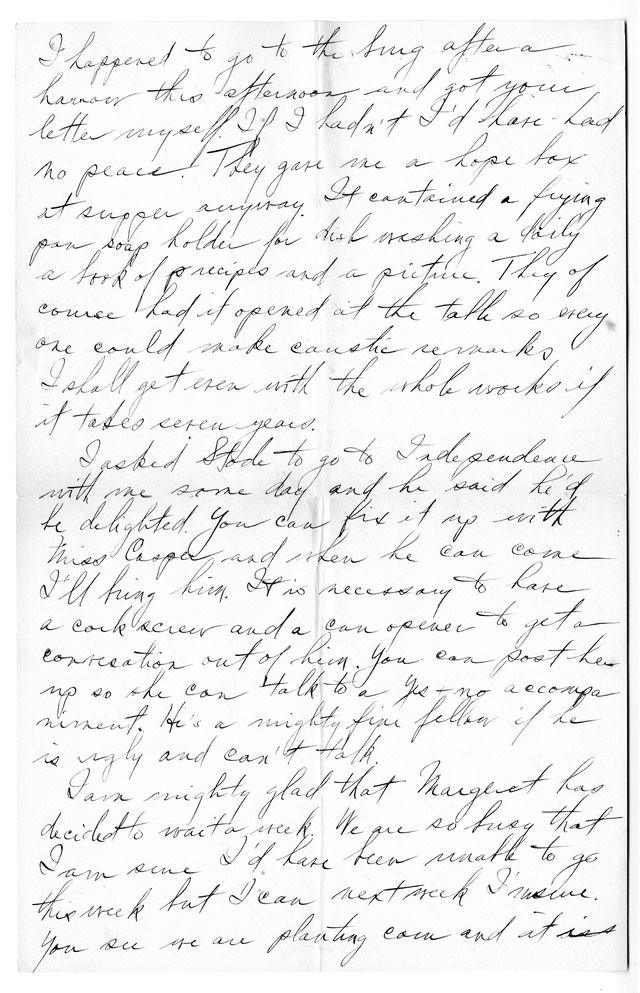 I happened to go to the burg after a
harrow this afternoon and got your
letter myself. If I hadn't I'd have had
no peace. They gave me a hope box
at supper anyway. It contained a frying
pan soap holder for dish washing a doily
a book of recipes and a picture. They of
course had it opened at the table so every
one could make caustic remarks
I shall get even with the whole works if
it takes seven years.
I asked Slode to go to Independence
with me some day and he said he'd
be delighted. You can fix it up with
Miss Casper and when he can come
I'll bring him. It is necessary to have
a cork screw and a can opener to get a
conversation out of him. You can post her
up so she can talk to a Yes-no accompa
niment. He's a mighty fine fellow if he
is ugly and can't talk.
I am mighty glad that Margaret has
decided to wait a week. We are so busy that
I am sure I'd have been unable to go
this week but I can next week I'm sure.
You see we are planting corn and it is